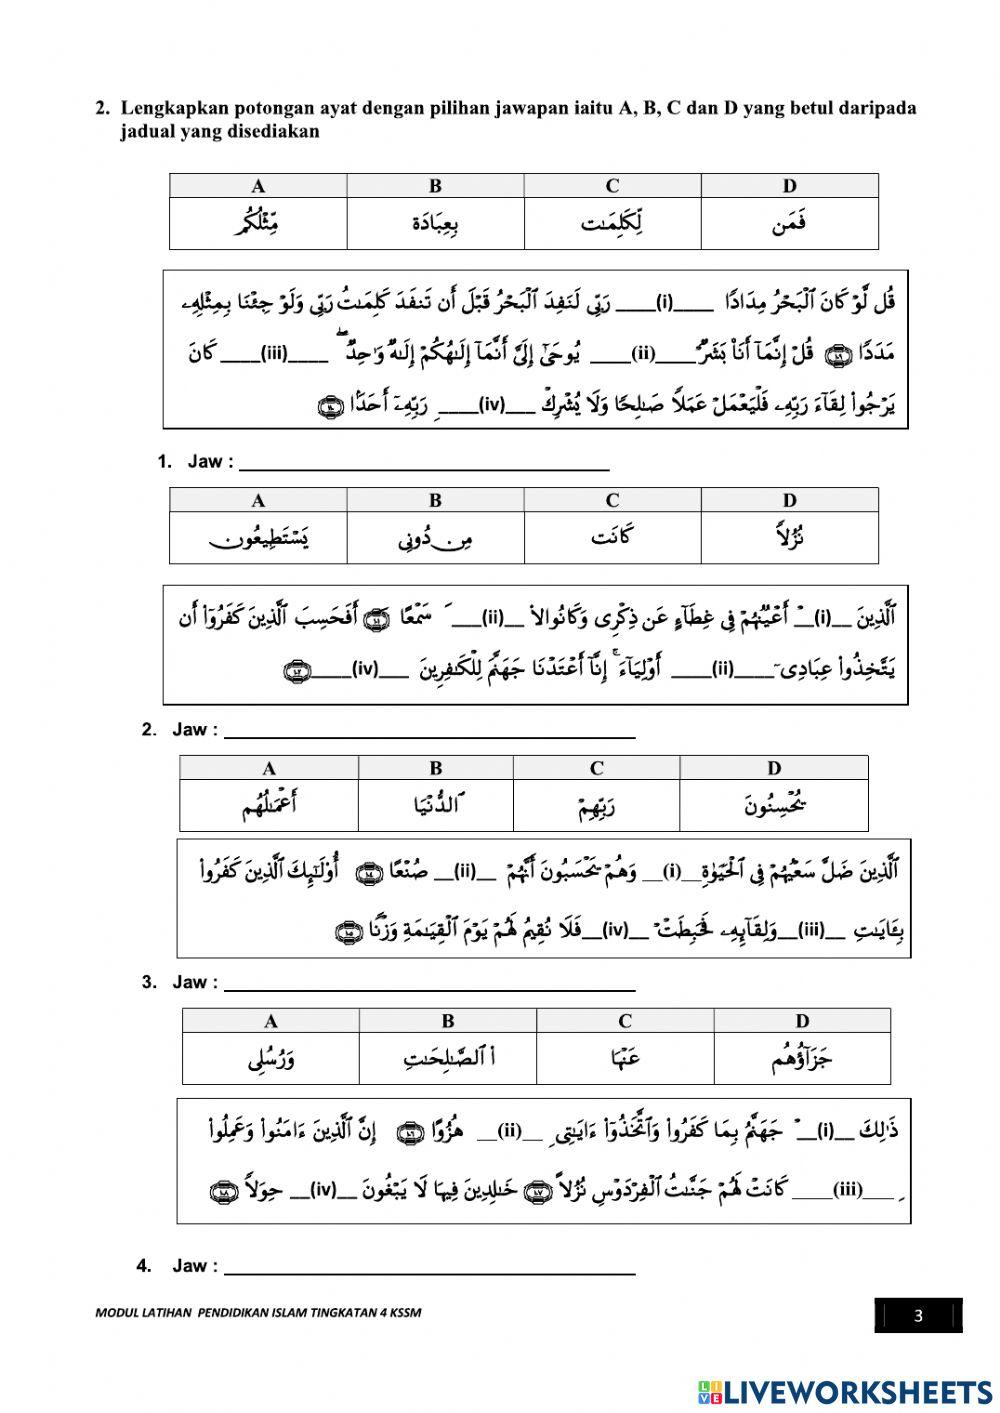 2. Lengkapkan potongan ayat dengan pilihan jawapan iaitu A, B, C dan D yang betul daripada
jadual yang disediakan
A B C D
مِّثْلُكُمْ بِعِبَادَة لِّكَلِمَـٰت فَمَن
قُل لَّوْ كَانَ ٱلْبَحْرُ مِدَادًا ____(i)____ رَبِّى لَنَفِدَ ٱلْبَحْرُ قَبْلَ أَن تَنفَدَ كَلِمَـٰتُ رَبِّى وَلَوْ جِئْنَا بِمِثْلِهِۦ
مَدَدًا ١٠٩ قُلْ إِنَّمَآ أَنَا۠ بَشَرٌ ____(ii)____ يُوحَىٰٓ إِلَىَّ أَنَّمَآ إِلَـٰهُكُمْ إِلَـٰهٌ وَٰحِدٌ ۖ ____(iii)____ كَانَ
يَرْجُوا۟ لِقَآءَ رَبِّهِۦ فَلْيَعْمَلْ عَمَلًا صَـٰلِحًا وَلَا يُشْرِكْ ___(iv)____ِ رَبِّهِۦٓ أَحَدًۢا ١١٠
1. Jaw : ____________________
A B C D
يَسْتَطِيعُون مِن دُونِى كَانَت نُزُلًا
ٱلَّذِينَ __(i)__ْ أَعْيُنُهُمْ فِى غِطَآءٍ عَن ذِكْرِى وَكَانُوا۟ لَا __(ii)___َ سَمْعًا ١٠١ أَفَحَسِبَ ٱلَّذِينَ كَفَرُوٓا۟ أَن
يَتَّخِذُوا۟ عِبَادِى ____(ii)____ٓ أَوْلِيَآءَ ۚ إِنَّآ أَعْتَدْنَا جَهَنَّمَ لِلْكَـٰفِرِينَ ___(iv)____ ١٠٢
2. Jaw : ____________________
A B C D
أَعْمَـٰلُهُم ٱلدُّنْيَا رَبِّهِمْ يُحْسِنُونَ
ٱلَّذِينَ ضَلَّ سَعْيُهُمْ فِى ٱلْحَيَوٰةِ __(i)__ وَهُمْ يَحْسَبُونَ أَنَّهُمْ __(ii)__ صُنْعًا ١٠٤ أُو۟لَـٰٓئِكَ ٱلَّذِينَ كَفَرُوا۟
بِـَٔايَـٰتِ __(iii)__ وَلِقَآئِهِۦ فَحَبِطَتْ __(iv)__ فَلَا نُقِيمُ لَهُمْ يَوْمَ ٱلْقِيَـٰمَةِ وَزْنًا ١٠٥
3. Jaw : ____________________
A B C D
وَرُسُلِى ا۟ ٱلصَّـٰلِحَـٰتِ عَنْهَا جَزَآؤُهُم
ذَٰلِكَ __(i)__ْ جَهَنَّمُ بِمَا كَفَرُوا۟ وَٱتَّخَذُوٓا۟ ءَايَـٰتِى __(ii)__ هُزُوًا ١٠٦ إِنَّ ٱلَّذِينَ ءَامَنُوا۟ وَعَمِلُوا۟
___(iii)____ كَانَتْ لَهُمْ جَنَّـٰتُ ٱلْفِرْدَوْسِ نُزُلًا ١٠٧ خَـٰلِدِينَ فِيهَا لَا يَبْغُونَ __(iv)__ حِوَلًا ١٠٨
4. Jaw : ____________________
MODUL LATIHAN PENDIDIKAN ISLAM TINGKATAN 4 KSSM
3
LIVE LIVEWORKSHEETS